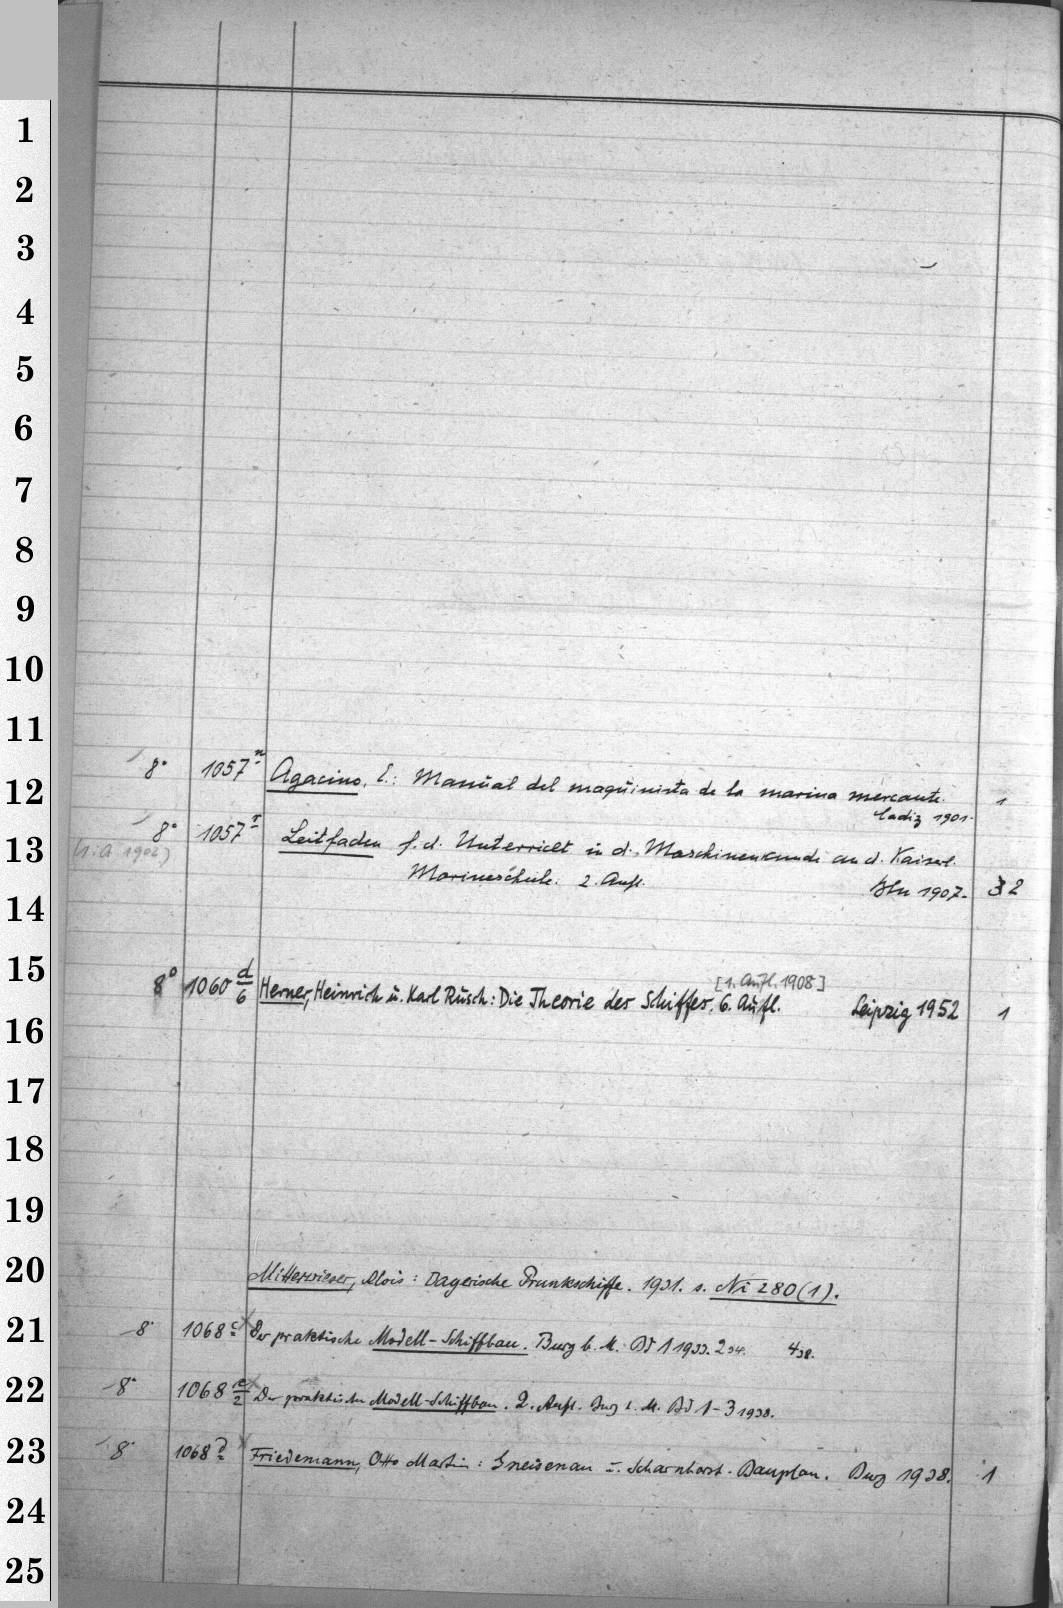 1
2
3
4
5
6
7
8
9
10
11
12
13
14
15
16
17
18
19
20
21
22
23
24
25
8° 1057 n Agacino, E.: Manual del maquinista de la marina mercante. 1
Cadiz 1901.
8° 1057 r Leitfaden f. d. Unterricht in d. Maschinenkunde an d. Kaiserl.
Marineschule. 2. Aufl. Bln 1907. 2
[1. Aufl. 1908]
8° 1060 d/6 Herner, Heinrich u. Karl Rusch: Die Theorie des Schiffes. 6. Aufl. Leipzig 1952 1
Mitterwieser, Alois: Bayerische Prunkschiffe. 1931. s. Ni 280(1).
8° 1068 c Der praktische Modell-Schiffbau. Burg b. M. Bd 1 1933. 2 34. 4 38.
8° 1068 c/2 Der praktische Modell-Schiffbau. 2. Aufl. Burg b. M. Bd 1-3 1938.
8° 1068 d Friedemann, Otto Martin: Gneisenau u. Scharnhorst. Bauplan. Burg 1938. 1